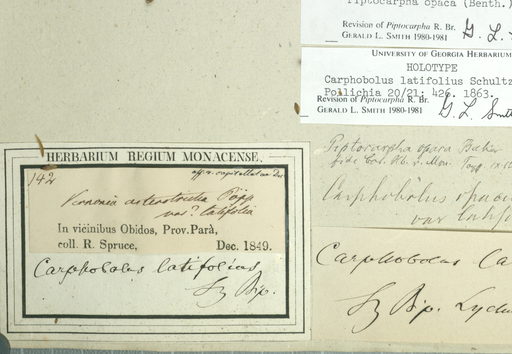 Piptocarpha opaca (Benth.)
Revision of Piptocarpha R. Br.
GERALD L. SMITH 1980-1981
G. L.
UNIVERSITY OF GEORGIA HERBARIUM
HOLOTYPE
Carphobolus latifolius Schultz
Pollichia 20/21: 426. 1863.
Revision of Piptocarpha R. Br.
GERALD L. SMITH 1980-1981
G. L. Smith
HERBARIUM REGIUM MONACENSE.
142
Vernonia
var? latifolia
In vicinibus Obidos, Prov. Parà,
coll. R. Spruce, Dec. 1849.
Carphobolus latifolius
Sz Bip.
Piptocarpha opaca Baker
Carphobolus opacus
var latifo
Carphobolus la
Sz Bip.